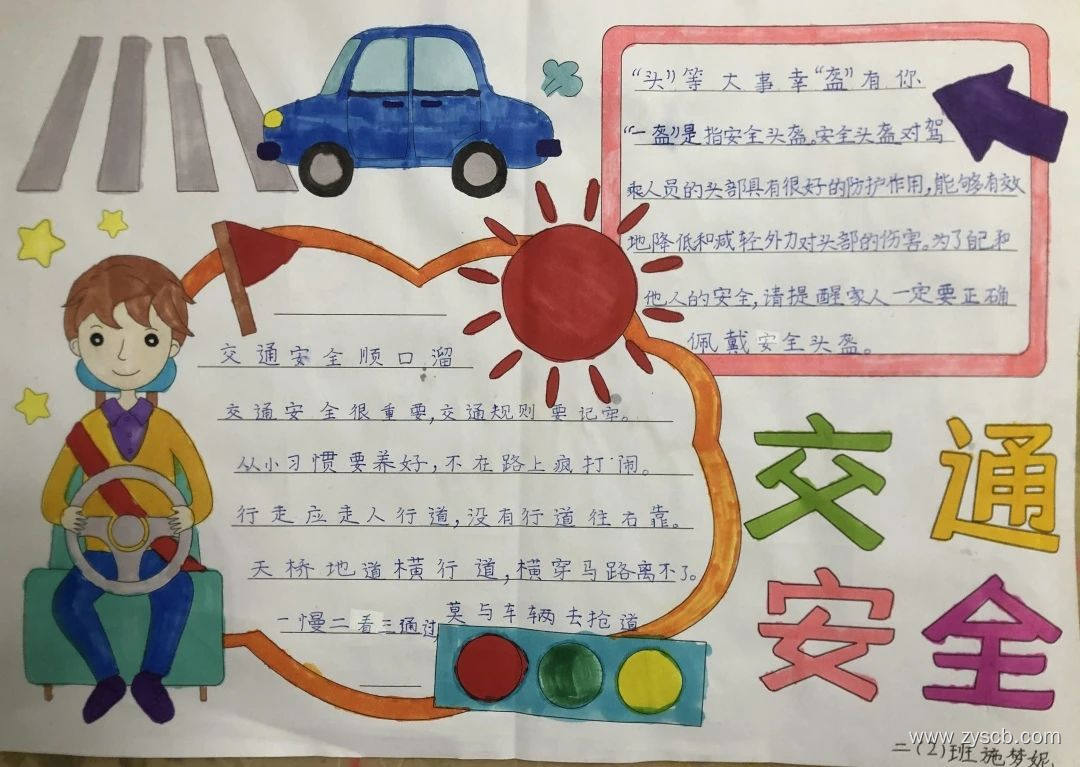 “头”等大事幸“盔”有你
“一盔”是指安全头盔。安全头盔对驾
乘人员的头部具有很好的防护作用,能够有效
地降低和减轻外力对头部的伤害。为了自己和
他人的安全,请提醒家人一定要正确
佩戴安全头盔。
交通安全顺口溜
交通安全很重要,交通规则要记牢。
从小习惯要养好,不在路上疯打闹。
行走应走人行道,没有行道往右靠。
天桥地道横行道,横穿马路离不了。
一慢二看三通过,莫与车辆去抢道
交通
安全
www.zyscb.com
二(2)班施梦妮